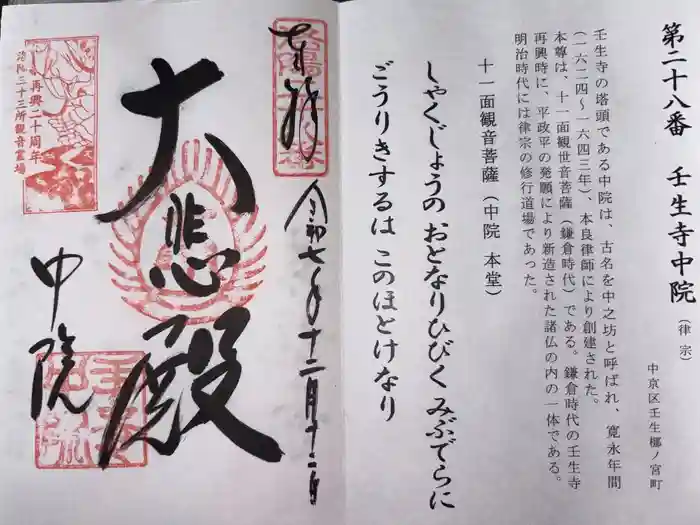 第二十八番　壬生寺中院（律宗）
中京区壬生梛ノ宮町
壬生寺の塔頭である中院は、古名を中之坊と呼ばれ、寛永年間
（一六二四〜一六四三年）、本良律師により創建された。
本尊は、十一面観世音菩薩（鎌倉時代）である。鎌倉時代の壬生寺
再興時に、平政平の発願により新造された諸仏の内の一体である。
明治時代には律宗の修行道場であった。
十一面観音菩薩（中院 本堂）
しゃくじょうの おとなりひびく みぶでらに
ごうりきするは このほとけなり
奉拝
令和七年十二月十二日
大悲殿
中院
再興二十周年
洛陽三十三所観音霊場